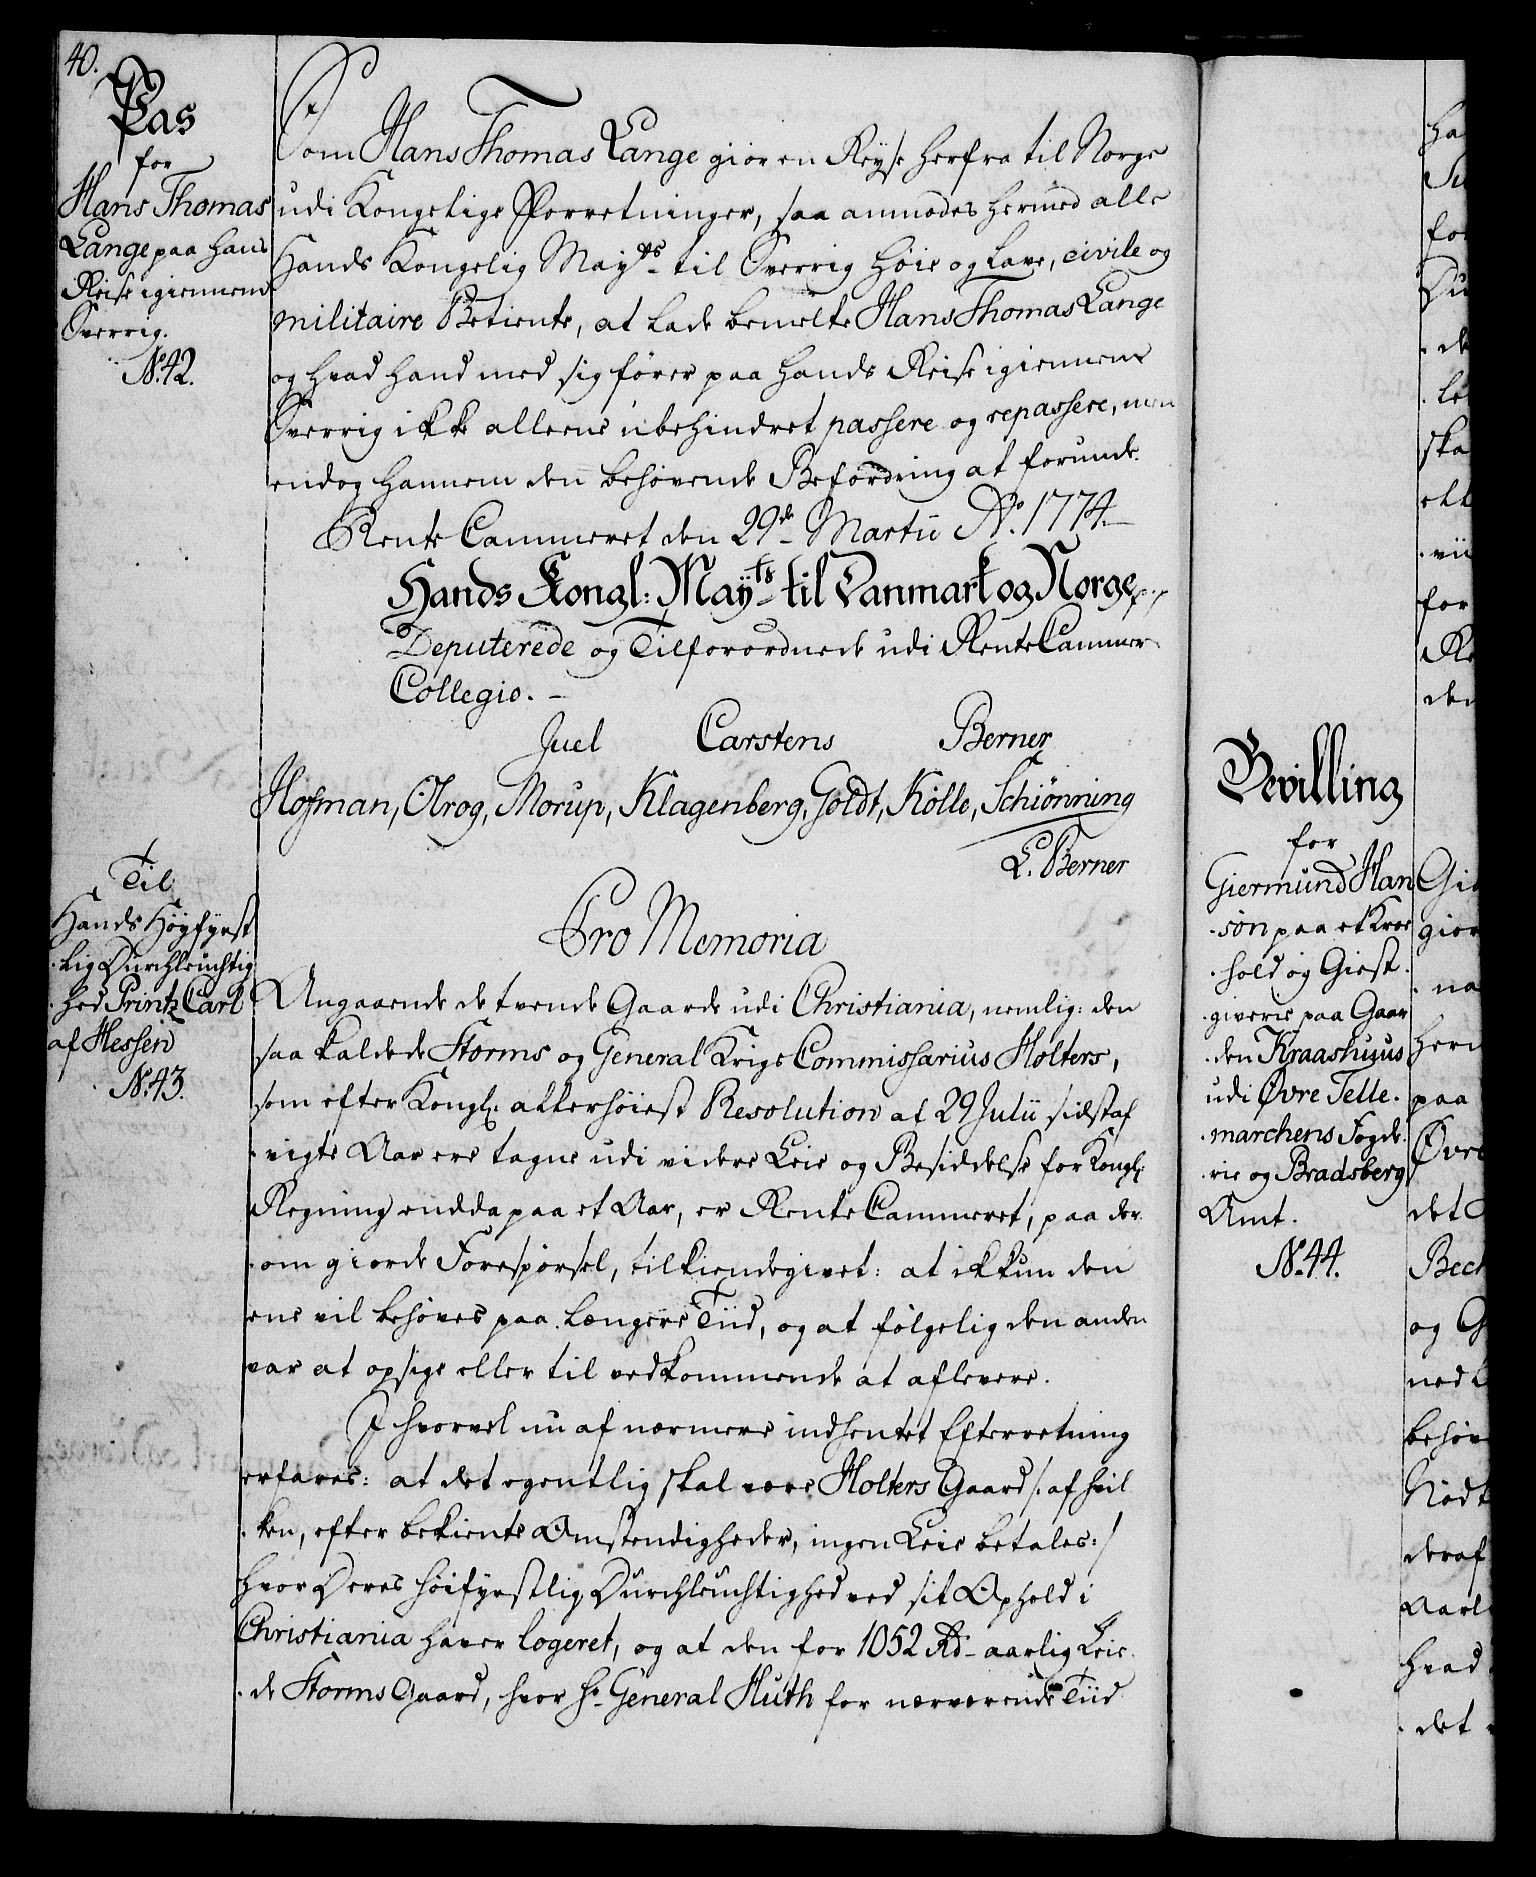 40.
Pas
for
Hans Thomas
Lange paa hans
Reise igiennem
Sverrig.
No. 42.
Som Hans Thomas Lange giør en Reyse herfra til Norge
udi Kongelige Forretninger, saa anmodes hermed alle
Hands Kongelig Mayts. til Sverrig høie og lave, civile og
militaire Betiente, at lade bemelte Hans Thomas Lange
og hvad hand med sig fører paa hands Reise igiennem
Sverrig ikke alleene ubehindret passere og repassere, men
endog hannem den behøvende Befordring at forunde.
Rente Cammeret den 29de Martii Ao. 1774.
Hands Kongl: Mayts. til Danmark og Norge p.p.
Deputerede og Tilforordnede udi Rente Cammer-
Collegio.
Juel Carstens Berner
Hofman, Olrog, Morup, Klagenberg, Goldt, Kølle, Schiønning
L. Berner
Til
Hands Høyfyrst
lig Durchleuchtig
hed Printz Carl
af Hessen
No. 43.
Pro Memoria
Angaaende de tvende Gaarde udi Christiania, nemlig: den
saa kaldede Storms og General Krigs Commissarius Holters,
som efter Kongl. allerhøiest Resolution af 29 Julii sidstaf
vigte Aar ere tagne udi videre Leie og Besiddelse for Kongl.
Regning endda paa et Aar, er Rente Cammeret, paa der
om giorde Forespørsel, tilkiendegivet: at ikkun den
ene vil behøves paa længere Tiid, og at følgelig den anden
var at opsige eller til vedkommende at aflevere.
I hvorvel nu af nærmere indhentet Efterretning
erfares: at det egentlig skal være Holters Gaard /: af hvil
ken, efter bekiente Omstendigheder, ingen Leie betales :/
hvor Deres høifyrstlig Durchleuchtighed ved sit Ophold i
Christiania haver logeret, og at den for 1052 Rd. aarlig Leie
de Storms Gaard, hvor Hr. General Huth for nærværende Tiid
Bevilling
for
Giermund Han
søn paa et Kroe
hold og Giest
giverie paa Gaar
den Kraashuus
udi Øvre Telle
marchens Fogde
rie og Bradsberg
Amt.
No. 44.
ha
for
de
le
ska
vii
for
Re
den
Gie
giør
na
her
paa
Øvre
det
Bech
og G
ned
behøv
Nødt
deraf
Aarl
hvad
det